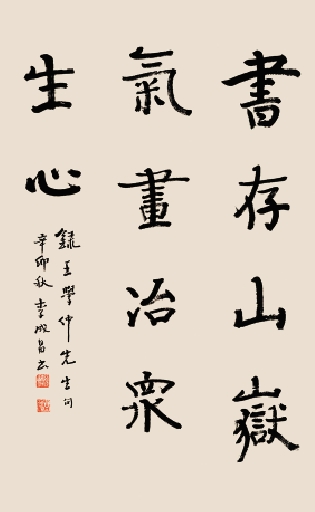 書存山嶽
氣畫冶眾
生心
錄王學仲先生句
辛卯秋李
書